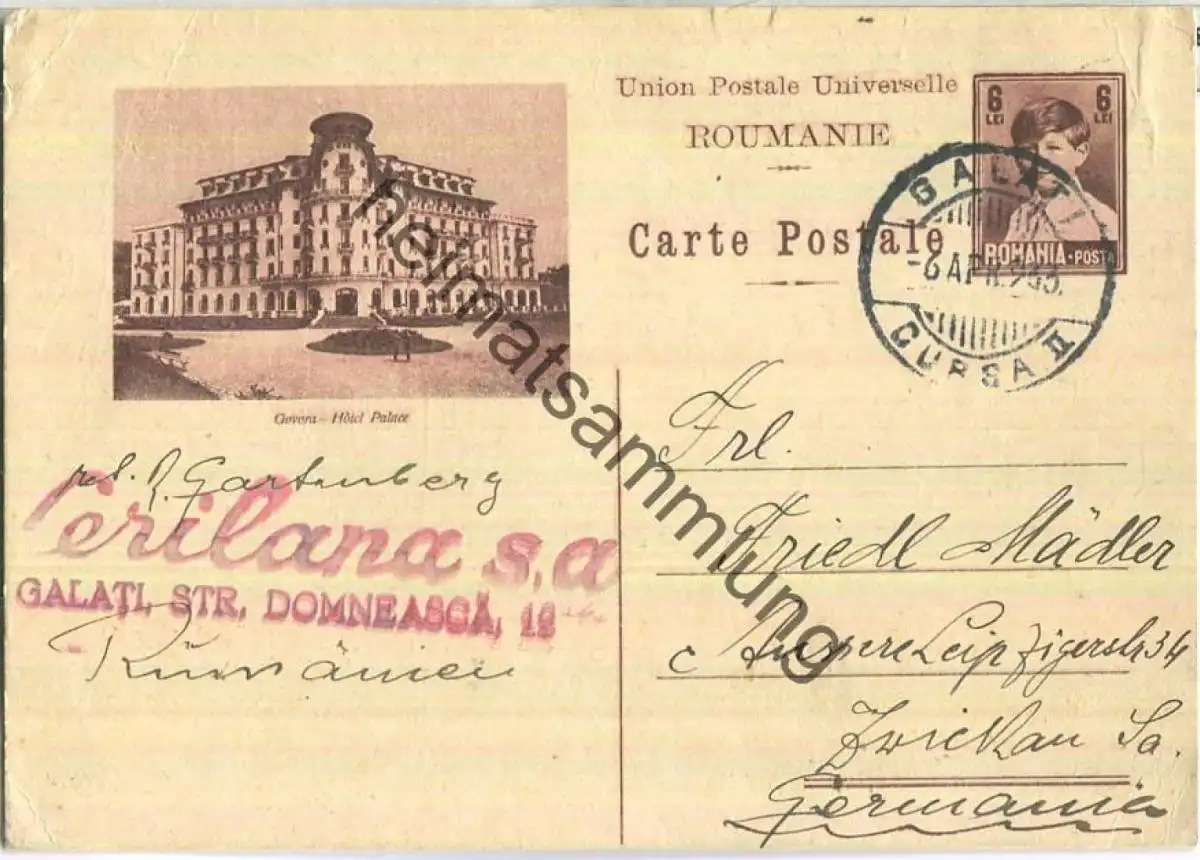 Union Postale Universelle
ROUMANIE
Carte Postale
6 LEI 6 LEI
ROMÂNIA-POSTA
GALAȚI
-6 APR. 935.
CURSA II
Govora — Hôtel Palace
R. Gartenberg
Verilana s.a
GALAȚI, STR. DOMNEASCĂ, 18
Rumänien
Frl.
Friedl Mädler
Äussere Leipzigerstr 34
Zwickau Sa.
Germania
heimatsammlung